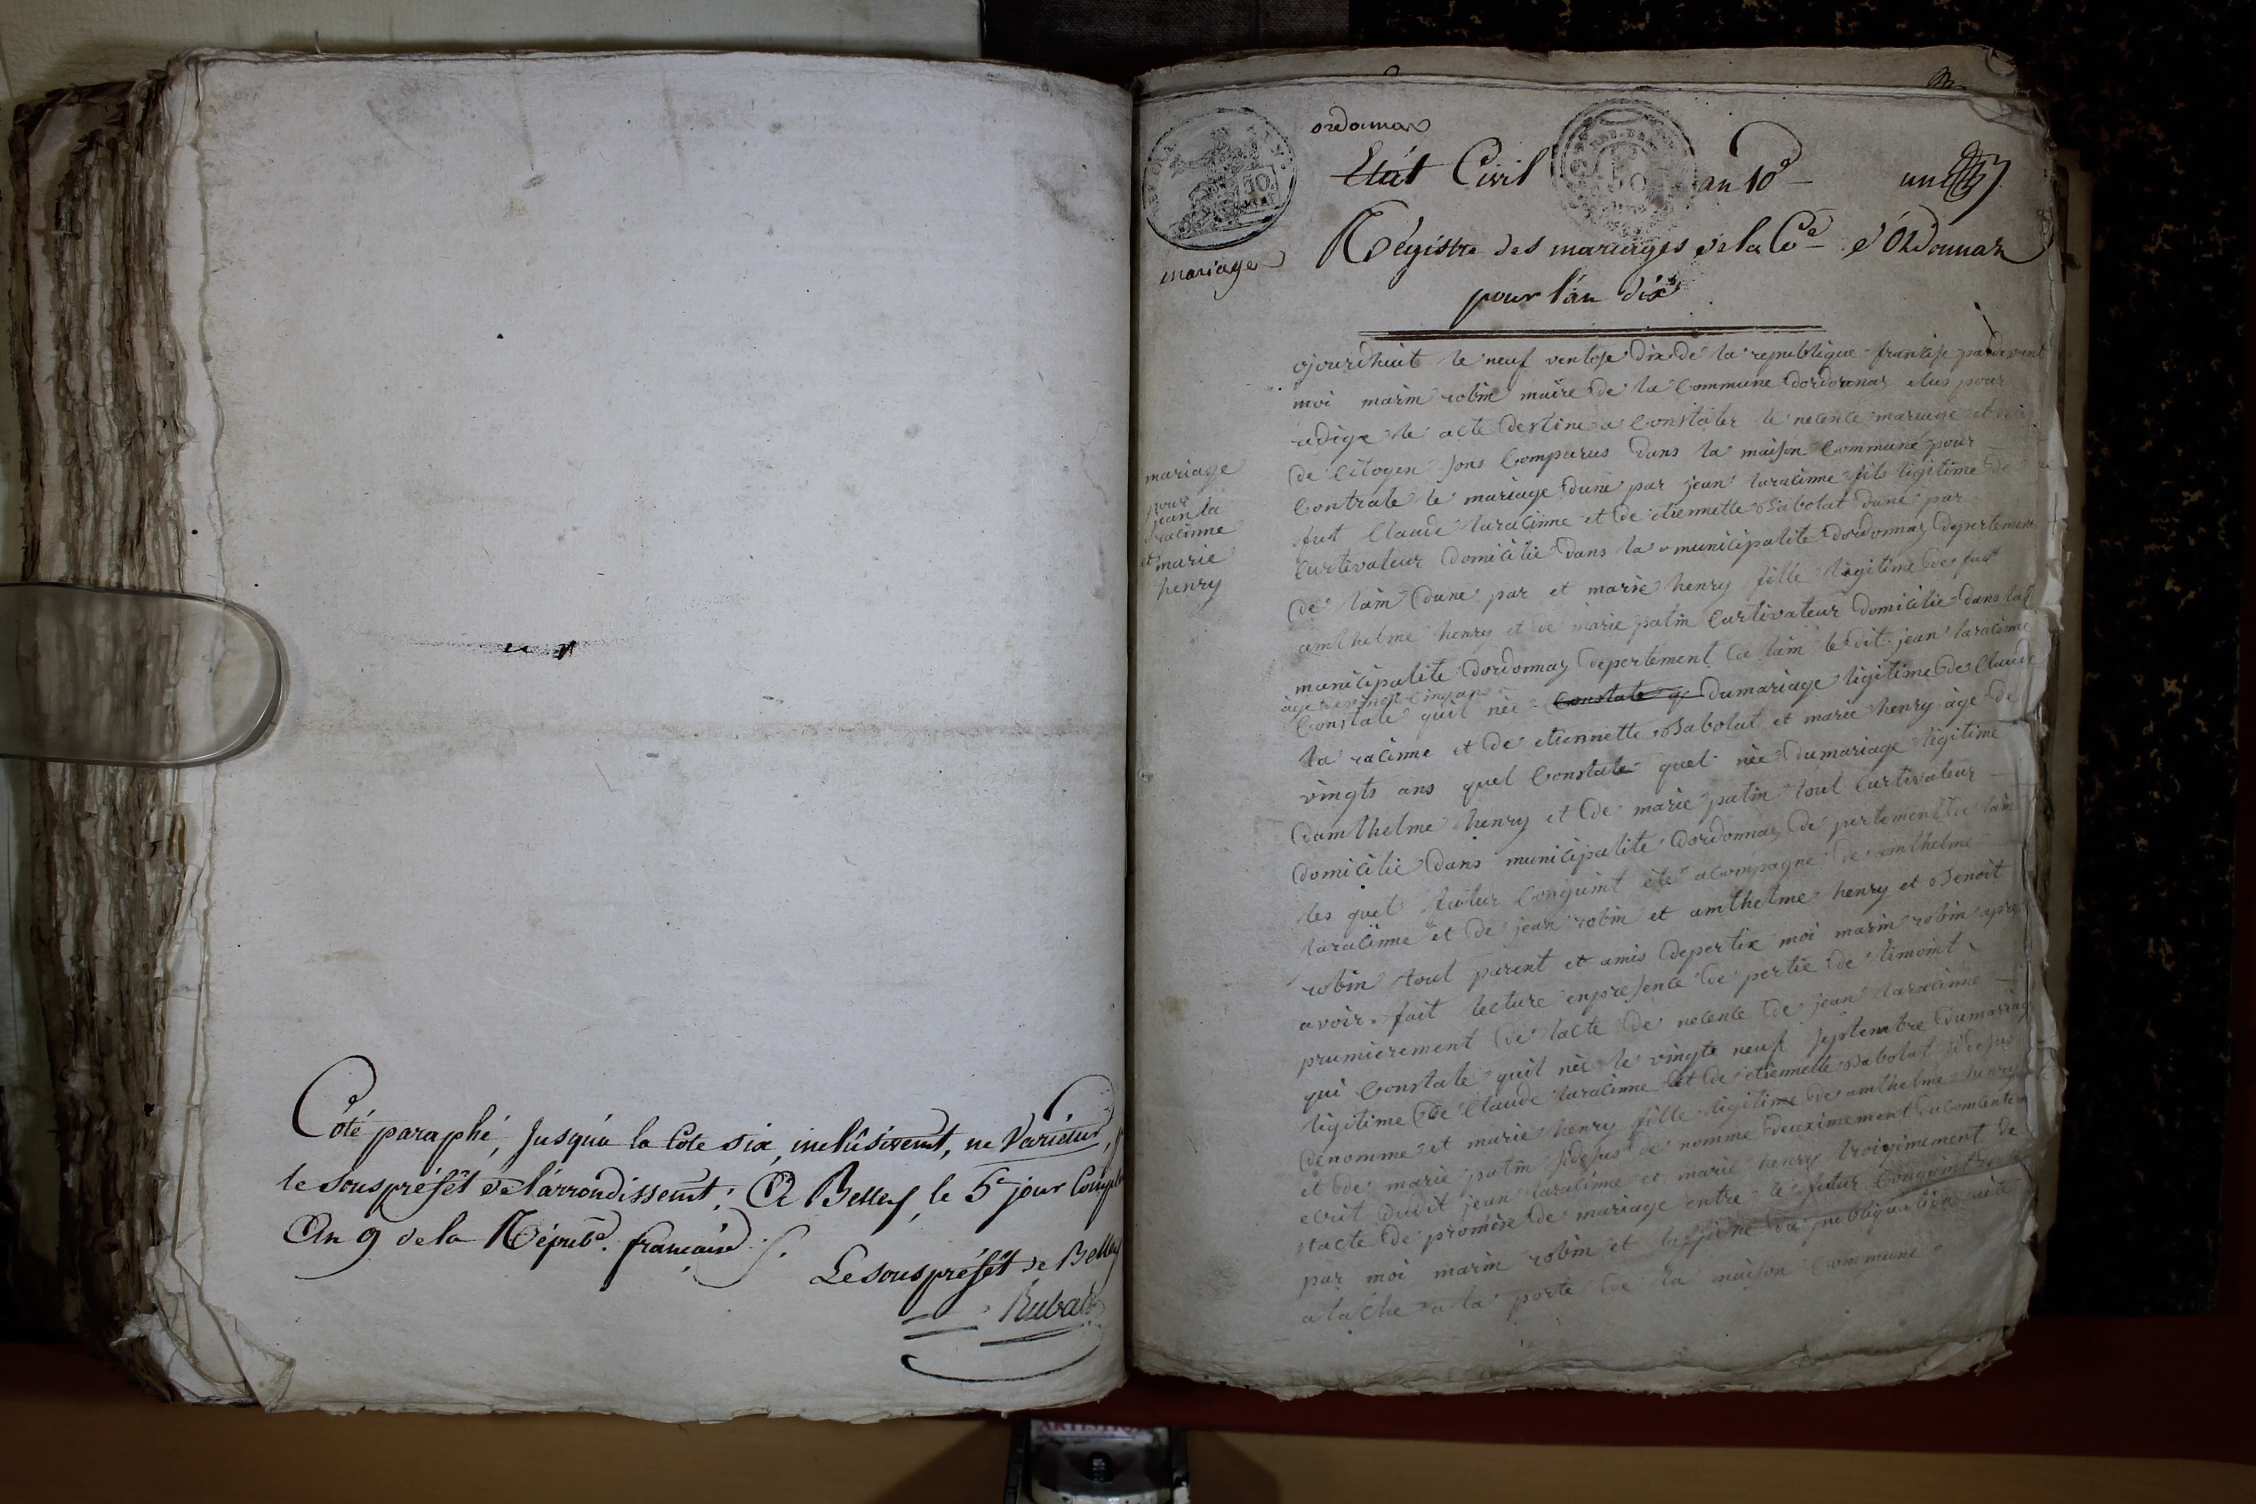 Coté paraphé, jusqu'à la Cote six, inclusivemt, ne Varietur,
le souspréfêt de l'arrondissemt. A Belley, le 5e jour Compl
An 9 de la Répube. française ./.
Le souspréfêt de Belley
Rubat
ordonnas
Etat Civil an 10e un
mariage
Régistre des mariages de la Cne d'Ordonnas
pour l'an dix
mariage
pour
jean la
racinne
et marie
henry
ojourdhuit le neuf ventose dix de la republique francise pardevent
moi marin robin maire de la Commune dordonnaz elus pour
redige le acte destine a Constater le necence mariage et
de Citoyen sons Comparus dans la maison Commune pour
Contrate le mariage dune par jean laracinne fils legitime de
fut Claude laracinne et de etiennette Babolat dune par
Curtivateur domicilie dans la municipalite dordonnaz depertement
de lain dune par et marie henry fille legitime de fut
amthelme henry et de marie patin Curtivateur domicilie dans la
municipalite dordonnaz depertement de lain le dit jean laracinne
age de vingt cinq ans
Constate quil née Constate q dumariage legitime de Claude
la racinne et de etiennette Babolat et marie henry age de
vingts ans quel Constate quel née dumariage legitime
damthelme henry et de marie patin tout Curtivateur
domicilie dans municipalite dordonnaz de pertement de lain
les quel futur Conguint été acompagne de amthelme
laracinne et de jean robin et amthelme henry et Benoit
robin tout parent et amis depertie moi marin robin apre
avoir fait lecture enpresence de pertie de temoint
prumierement de lacte de necence de jean laracinne
qui Constate quil née le vingts neuf septembre dumariage
legitime de Claude laracinne et de etiennette Babolat
denomme et marie henry fille legitime de amthelme henry
et de marie patin sidesus de nomme deuximement
ecrit dudit jean laracinne et marie henry troisimement de
lacte de promése de mariage entre le futur Conguint
par moi marin robin et la publiquation
atache a la porte de la maison Commune